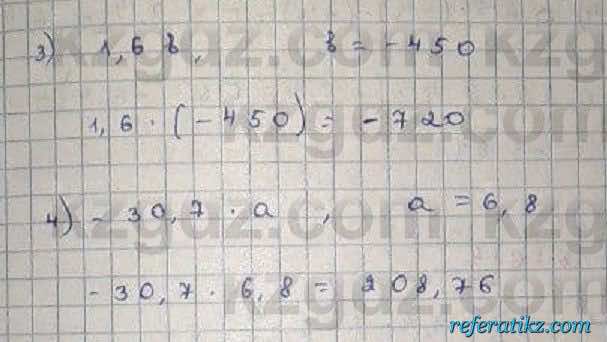 3) 1,6 b, b = -450
1,6 · (-450) = -720
4) -30,7 · a , a = 6,8
-30,7 · 6,8 = 208,76
referatikz.com